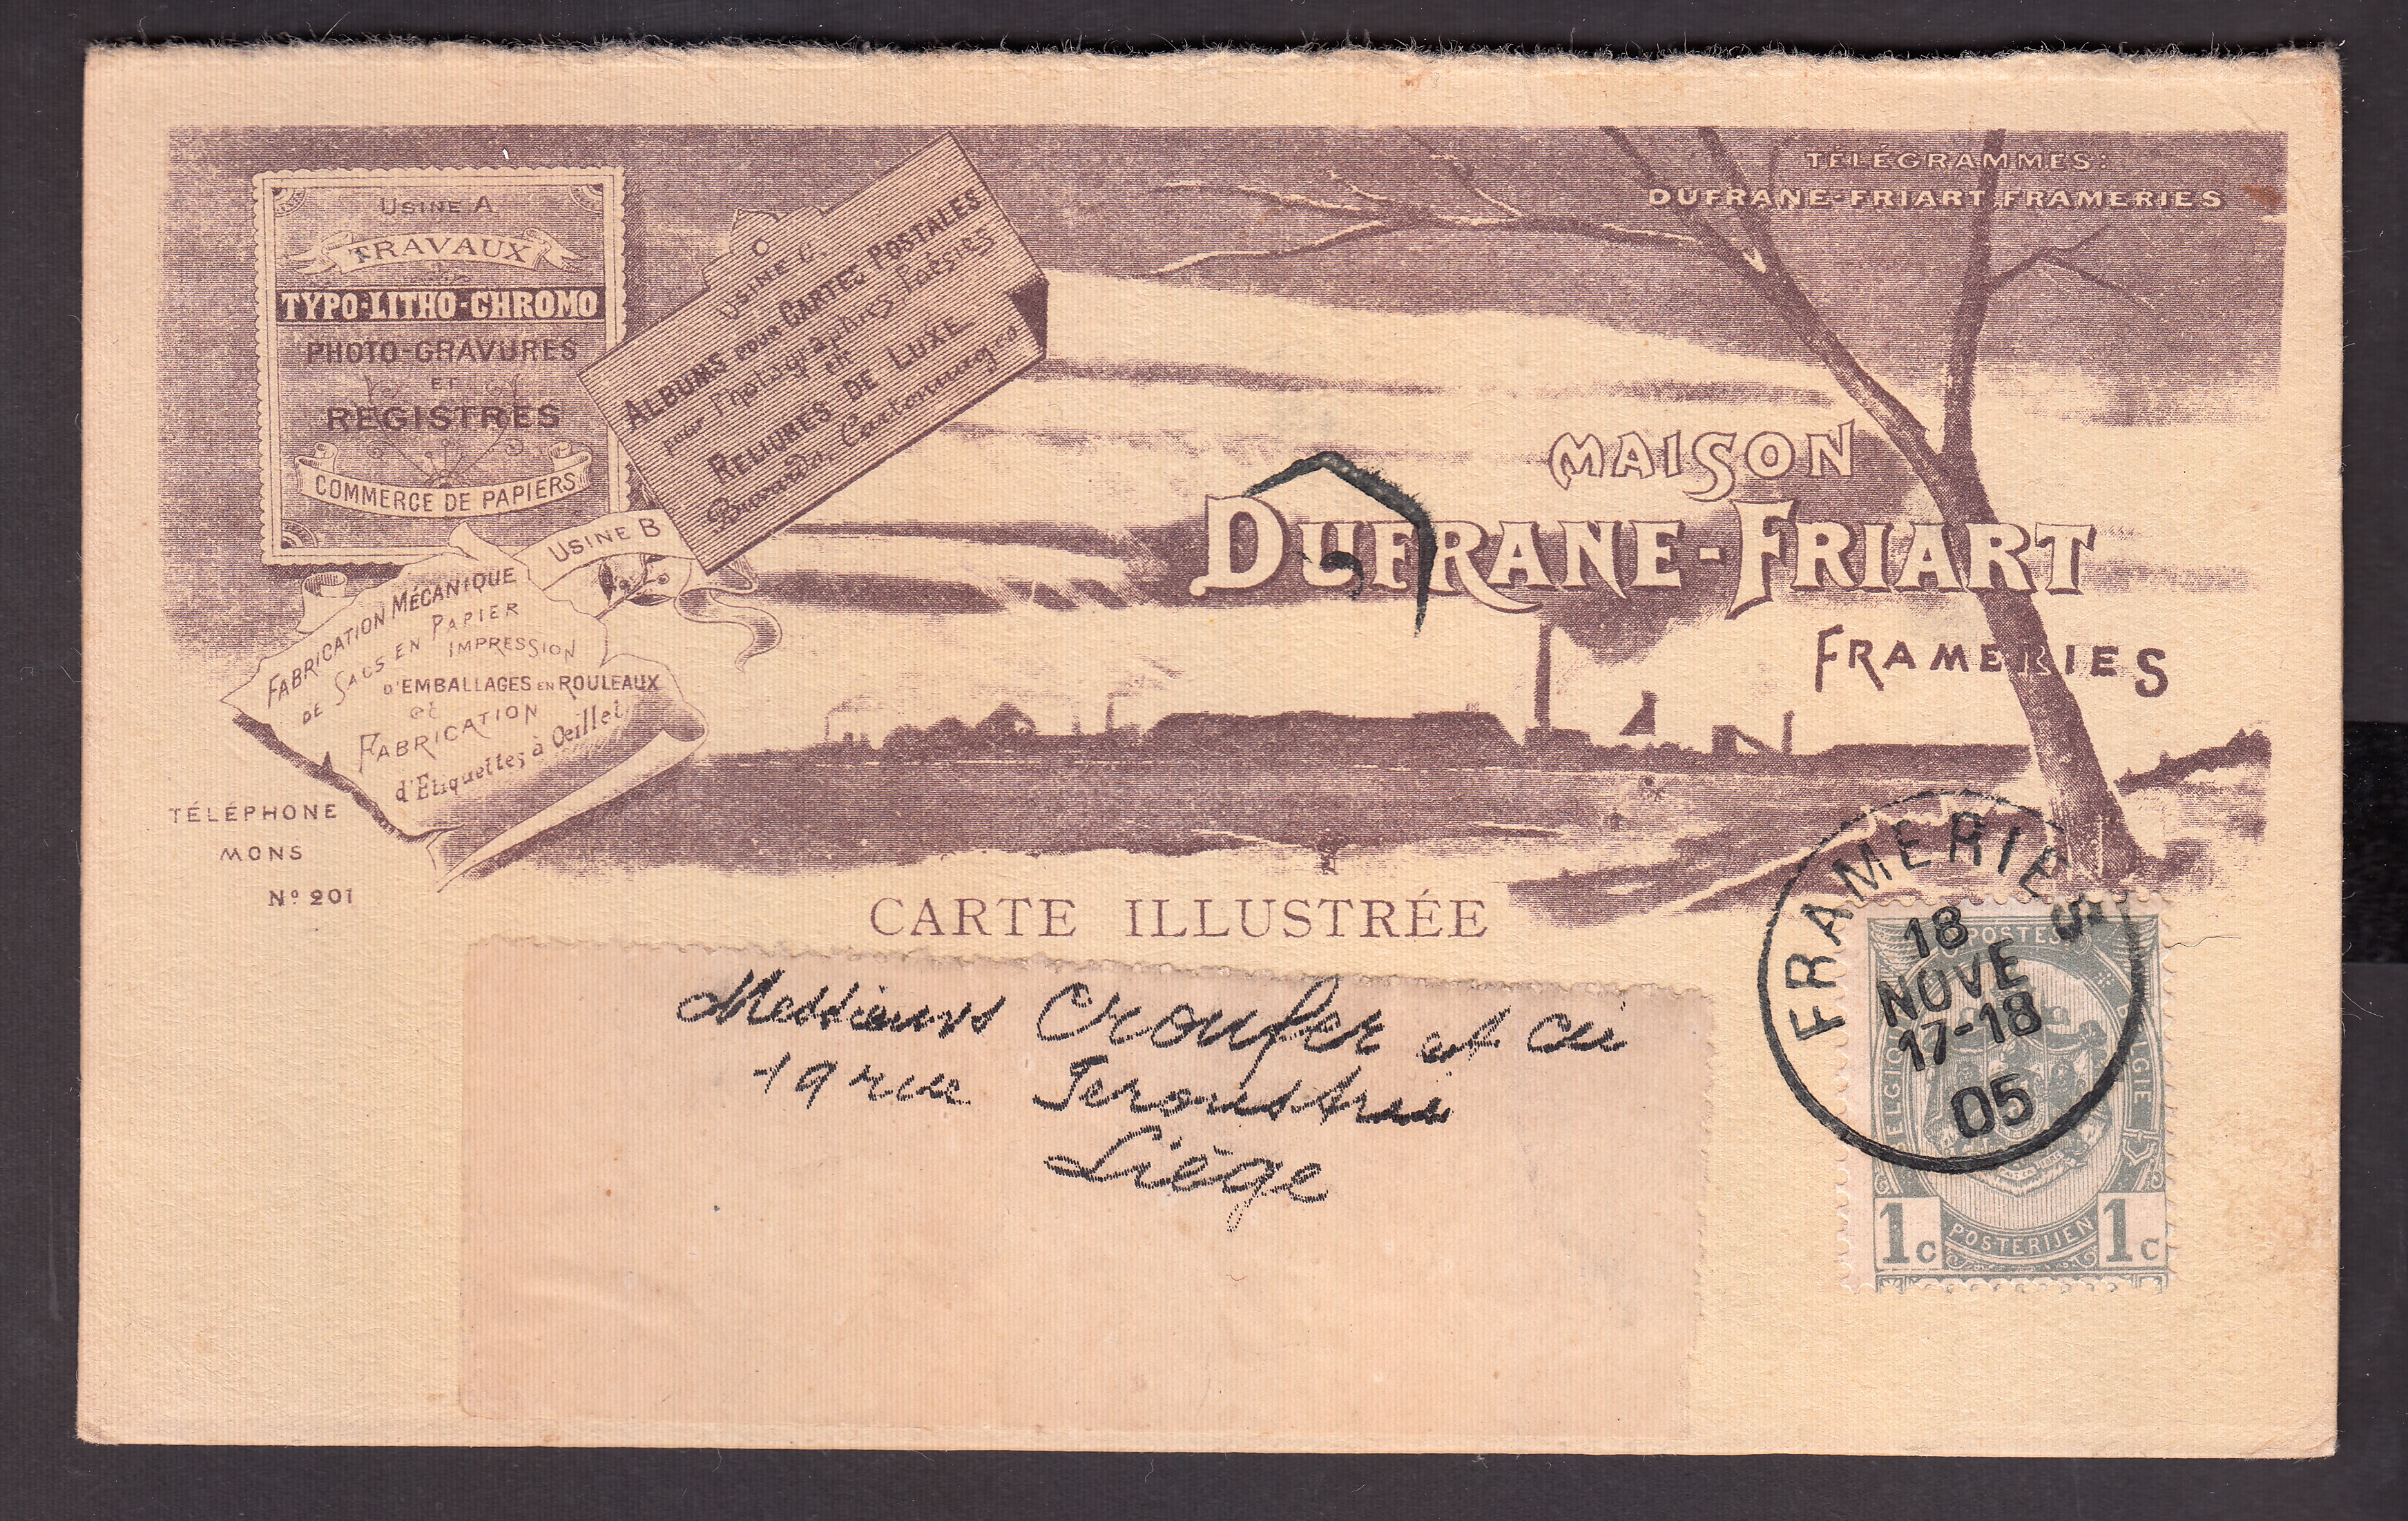 TÉLÉGRAMMES:
DUFRANE-FRIART, FRAMERIES
USINE A
TRAVAUX
TYPO-LITHO-CHROMO
PHOTO-GRAVURES
ET
REGISTRES
COMMERCE DE PAPIERS
USINE C.
ALBUMS POUR CARTES POSTALES
pour Photographies Poésies
etc
RELIURES DE LUXE
Buvards, Cartonnages
USINE B
FABRICATION MÉCANIQUE
DE SACS EN PAPIER
IMPRESSION
D'EMBALLAGES EN ROULEAUX
et
FABRICATION
d'Etiquettes à Œillet
MAISON
DUFRANE-FRIART
FRAMERIES
TÉLÉPHONE
MONS
Nº 201
CARTE ILLUSTRÉE
Messieurs et Cie
19 rue
Liège
FRAMERIES
18
NOVE
17-18
05
POSTES
BELGIQUE
BELGIË
POSTERIJEN
1c 1c